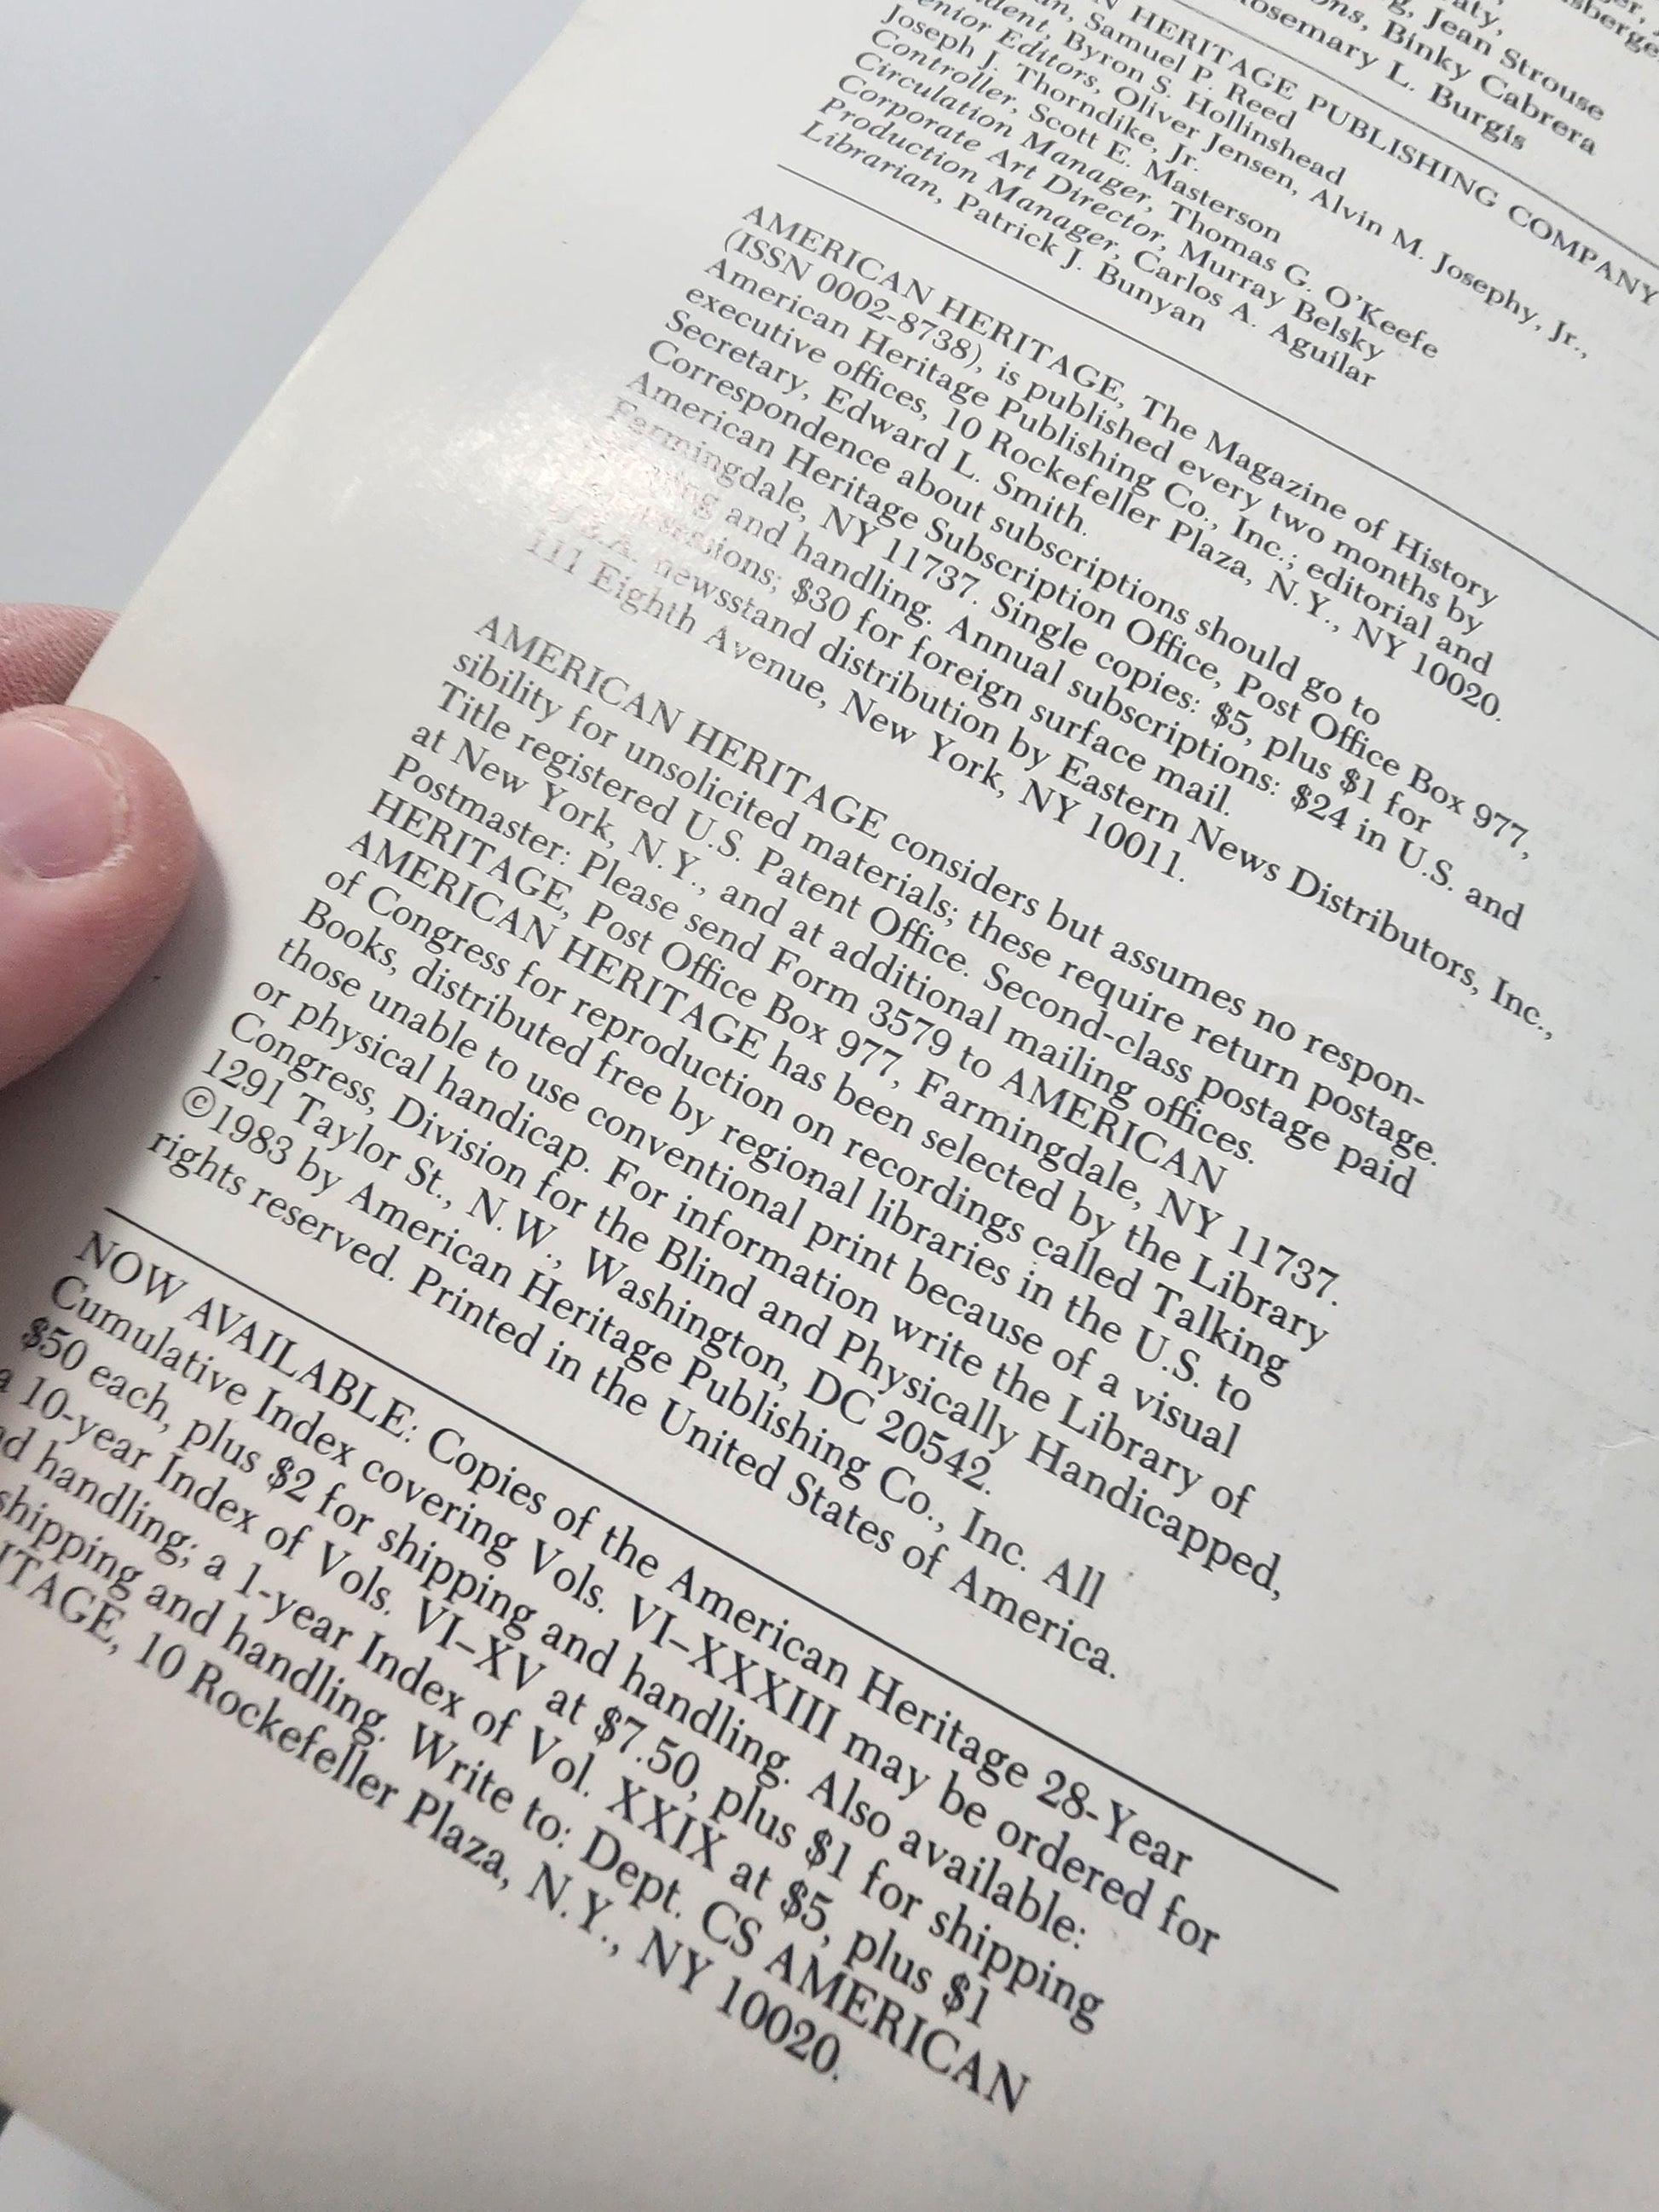 Jean Strouse
Binky Cabrera
Rosemary L. Burgis
HERITAGE PUBLISHING COMPANY
Samuel P. Reed
Byron S. Hollinshead
Editors, Oliver Jensen, Alvin M. Josephy, Jr.,
Joseph J. Thorndike, Jr.
Controller, Scott E. Masterson
Circulation Manager, Thomas G. O'Keefe
Corporate Art Director, Murray Belsky
Production Manager, Carlos A. Aguilar
Librarian, Patrick J. Bunyan
AMERICAN HERITAGE, The Magazine of History
(ISSN 0002-8738), is published every two months by
American Heritage Publishing Co., Inc.; editorial and
executive offices, 10 Rockefeller Plaza, N.Y., NY 10020.
Secretary, Edward L. Smith.
Correspondence about subscriptions should go to
American Heritage Subscription Office, Post Office Box 977,
Farmingdale, NY 11737. Single copies: $5, plus $1 for
and handling. Annual subscriptions: $24 in U.S. and
$30 for foreign surface mail.
newsstand distribution by Eastern News Distributors, Inc.,
111 Eighth Avenue, New York, NY 10011.
AMERICAN HERITAGE considers but assumes no respon-
sibility for unsolicited materials; these require return postage.
Title registered U.S. Patent Office. Second-class postage paid
at New York, N.Y., and at additional mailing offices.
Postmaster: Please send Form 3579 to AMERICAN
HERITAGE, Post Office Box 977, Farmingdale, NY 11737.
AMERICAN HERITAGE has been selected by the Library
of Congress for reproduction on recordings called Talking
Books, distributed free by regional libraries in the U.S. to
those unable to use conventional print because of a visual
or physical handicap. For information write the Library of
Congress, Division for the Blind and Physically Handicapped,
1291 Taylor St., N.W., Washington, DC 20542.
©1983 by American Heritage Publishing Co., Inc. All
rights reserved. Printed in the United States of America.
NOW AVAILABLE: Copies of the American Heritage 28-Year
Cumulative Index covering Vols. VI–XXXIII may be ordered for
$50 each, plus $2 for shipping and handling. Also available:
a 10-year Index of Vols. VI–XV at $7.50, plus $1 for shipping
handling; a 1-year Index of Vol. XXIX at $5, plus $1
shipping and handling. Write to: Dept. CS AMERICAN
ITAGE, 10 Rockefeller Plaza, N.Y., NY 10020.